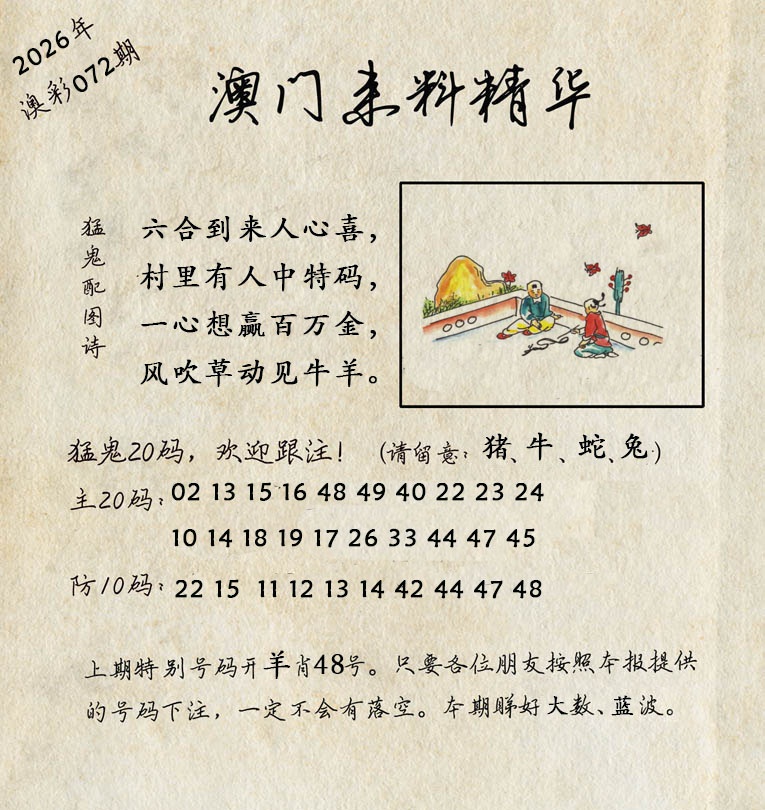 2026年
澳彩072期
澳门来料精华
猛鬼配图诗
六合到来人心喜，
村里有人中特码，
一心想赢百万金，
风吹草动见牛羊。
猛鬼20码，欢迎跟注！（请留意：猪、牛、蛇、兔）
主20码：02 13 15 16 48 49 40 22 23 24
10 14 18 19 17 26 33 44 47 45
防10码：22 15 11 12 13 14 42 44 47 48
上期特别号码开羊肖48号。只要各位朋友按照本报提供
的号码下注，一定不会有落空。本期睇好大数、蓝波。